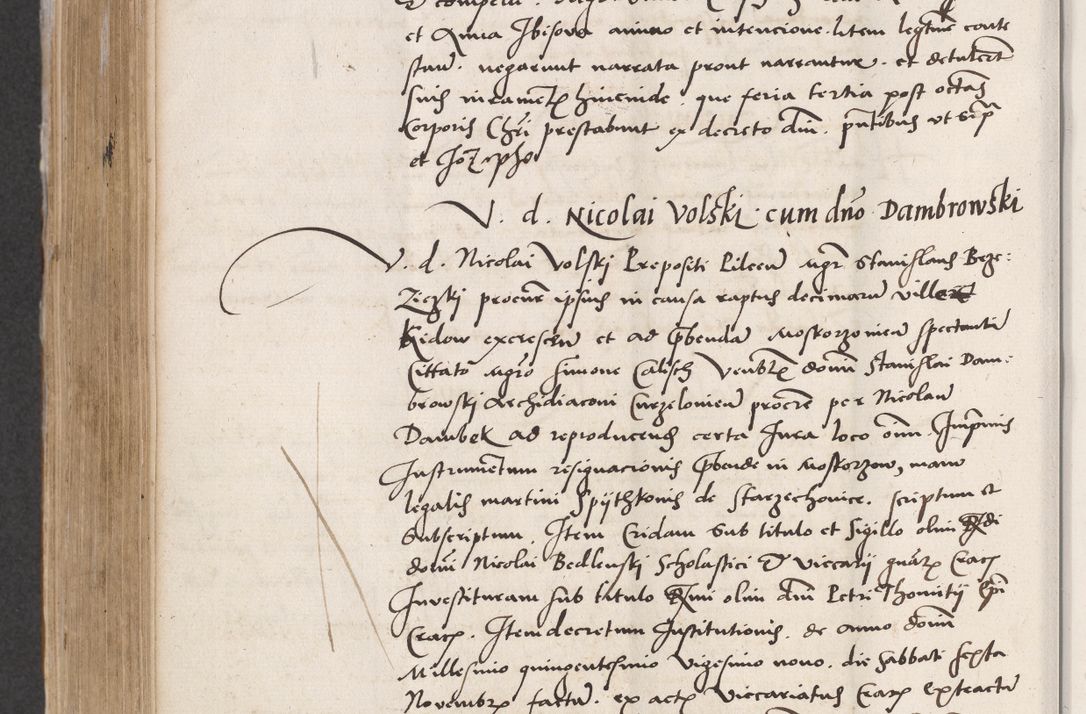 et Anna Ibisova animo et intencione litem legtime conte
stan. negarunt narrata prout narrantur. et detulert
suis iuramet hincinde. que feria tertia post octas
Corporis Chri prestabunt ex decreto dni. pntibus ut sup
et Jozepho
V. d. Nicolai Volski cum dno Dambrowski
V. d. Nicolai Volski Prepositi Pilcen mgr Stanislaus Beze-
procur ipsius in causa raptus decimaru ville
Kidow excrescen et ad pbenda Moskorzonien spectantiu
Cittato mgro Simone Calisch Venblis domi Stanislai Dam-
browski Archidiaconi Curzelonien procure per Nicolau
Dambek ad reproducendu certa Jura loco omi. Imprimis
Instrumetum resignacionis pbende in Moskorzow, manu
legalis martini Spythkonis de Starzechovice. scriptum et
Subscriptum. Item Cridam sub titulo et Sigillo olim Rdi
domi Nicolai Bedlenski Scholastici et Viccarii Crac
Investituram sub titulo Rmi olim dni Petri Thomitii Epi
Crac. Item decretum Institutionis. de anno domi
Millesimo quingentesimo Vigesimo nono. die Sabbati sexta
Novembr factu. ex actis Vicariatus Crac Extractu